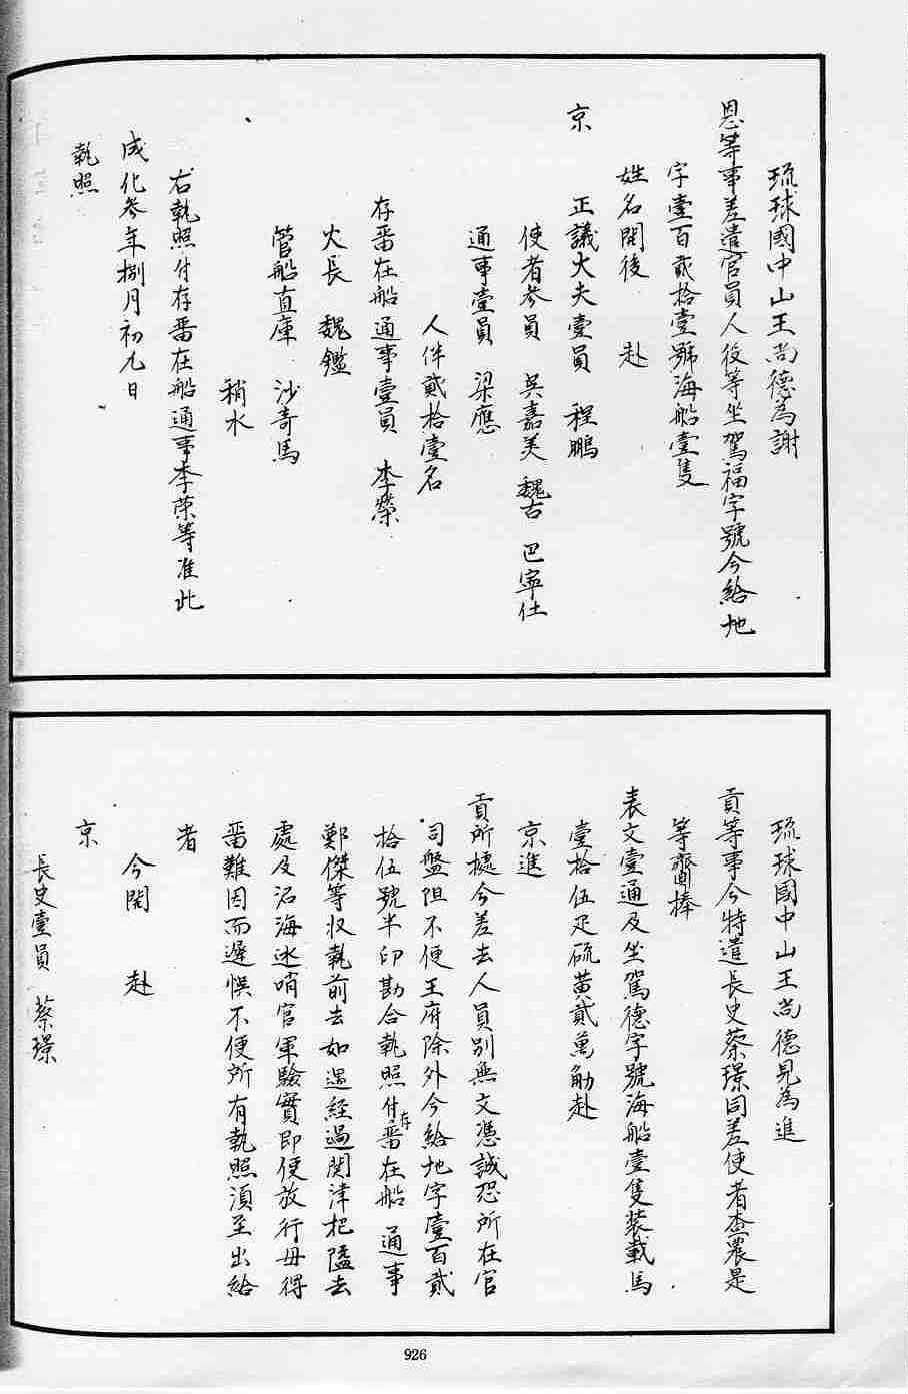 琉球國中山王尚德為謝
恩等事差遣官員人伇等坐駕福字號今給地
字壹百貳拾壹號海船壹隻
姓名開後　赴
京　正議大夫壹員　程鵬
使者參員　吳嘉美　魏古　巴寧仕
通事壹員　梁應
人伴貳拾壹名
存畨在船通事壹員　李榮
火長　魏鑑
管船直庫　沙奇馬
稍水
右執照付存畨在船通事李荣等准此
成化叁年捌月初九日
執照
琉球國中山王尚德見為進
貢等事今特遣長史蔡璟同差使者查農是
等齎捧
表文壹通及坐駕德字號海船壹隻装載馬
壹拾伍疋硫黄貳萬觔赴
京進
貢所據今差去人員別無文憑誠恐所在官
司盤阻不便王府除外今給地字壹百貳
拾伍號半印勘合執照付存畨在船通事
鄭傑等収執前去如遇經過関津把隘去
處及沿海廵哨官軍驗實即便放行毋得
畨難因而遲悮不便所有執照湏至出給
者
今開　赴
京
長史壹員　蔡璟
926